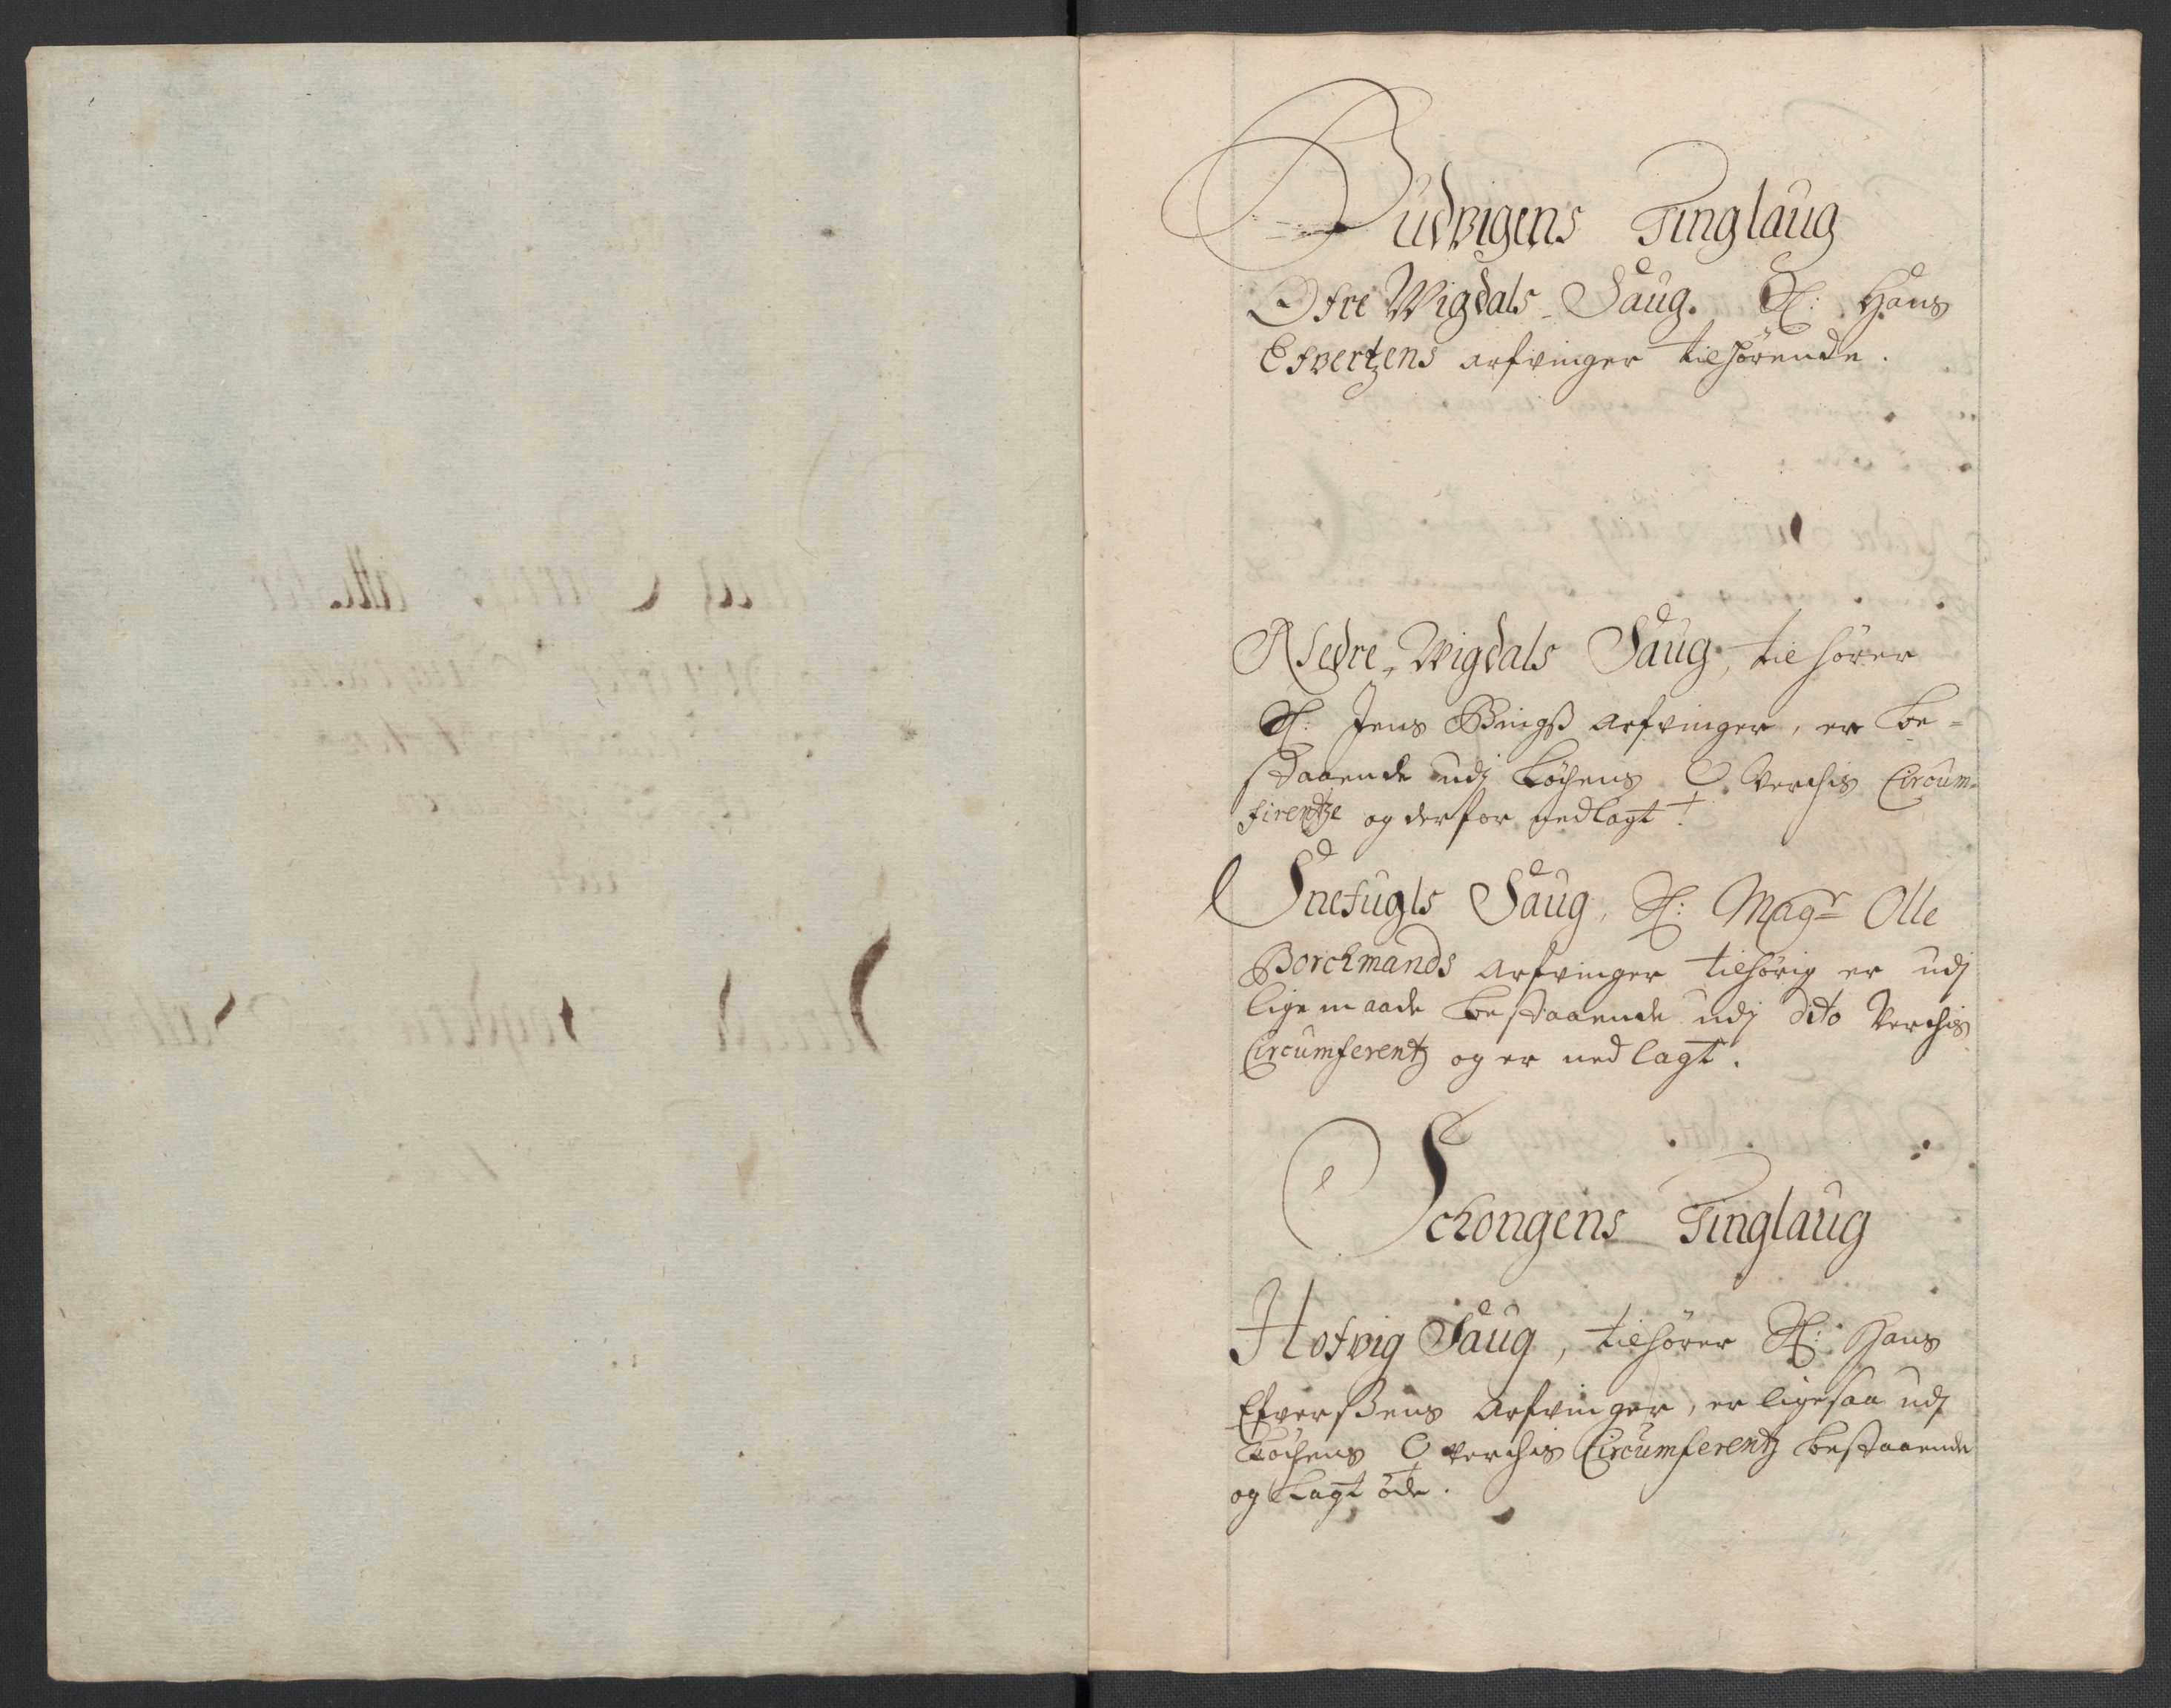 Budvigens Tinglaug
Øfre Wigdals Saug. Sl: Hans
Efvertzens arfvinger tilhørende.
Nedre Wigdals Saug, tilhører
Sl: Jens Bingß arfvinger, er be-
staaende udj Løchens Verchis Circum-
firentze og derfor nedlagt.
Snefugls Saug, Sl: Magr Olle
Borchmands arfvinger tilhørig er udj
lige maade bestaaende udj dito Verchis
Circumferentz og er nedlagt.
Schongens Tinglaug
Hofvig Saug, tilhører Sl: Hans
Efverßens Arfvinger, er ligesaa udj
Løchens Verchis Circumferentz bestaaende
og Lagt øde.